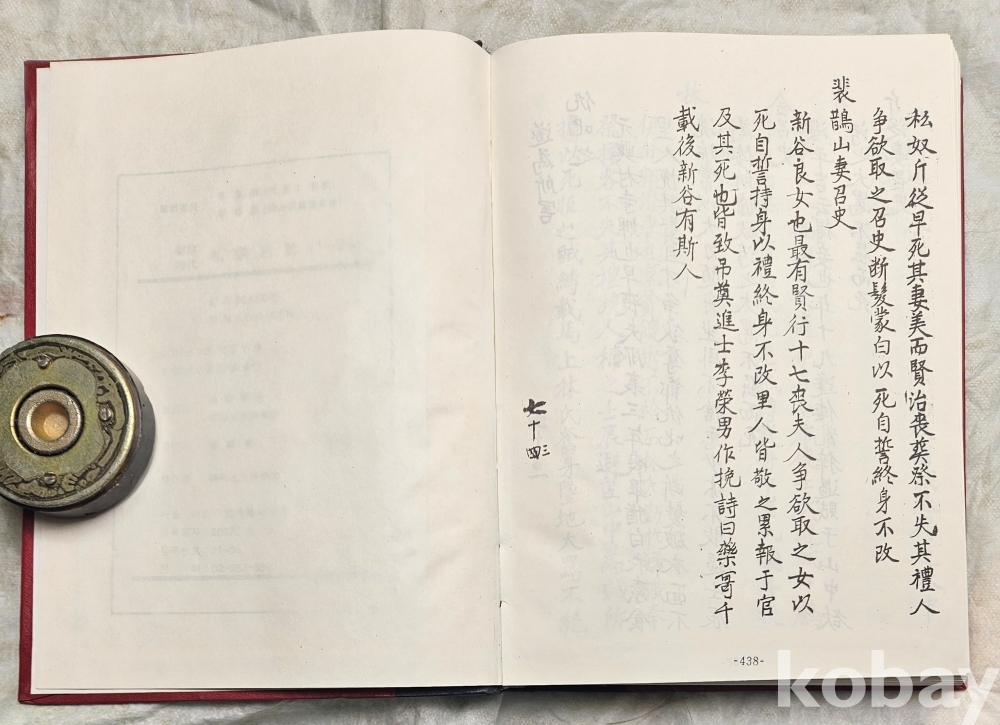 私奴斤從早死其妻美而賢治喪葬祭不失其禮人
爭欲取之召史断髮蒙白以死自誓終身不改
裴鵲山妻召史
新谷良女也最有賢行十七喪夫人爭欲取之女以
死自誓持身以禮終身不改里人皆敬之累報于官
及其死也皆致吊奠進士李榮男作挽詩曰藥哥千
載後新谷有斯人
七十四三
-438-
kobay